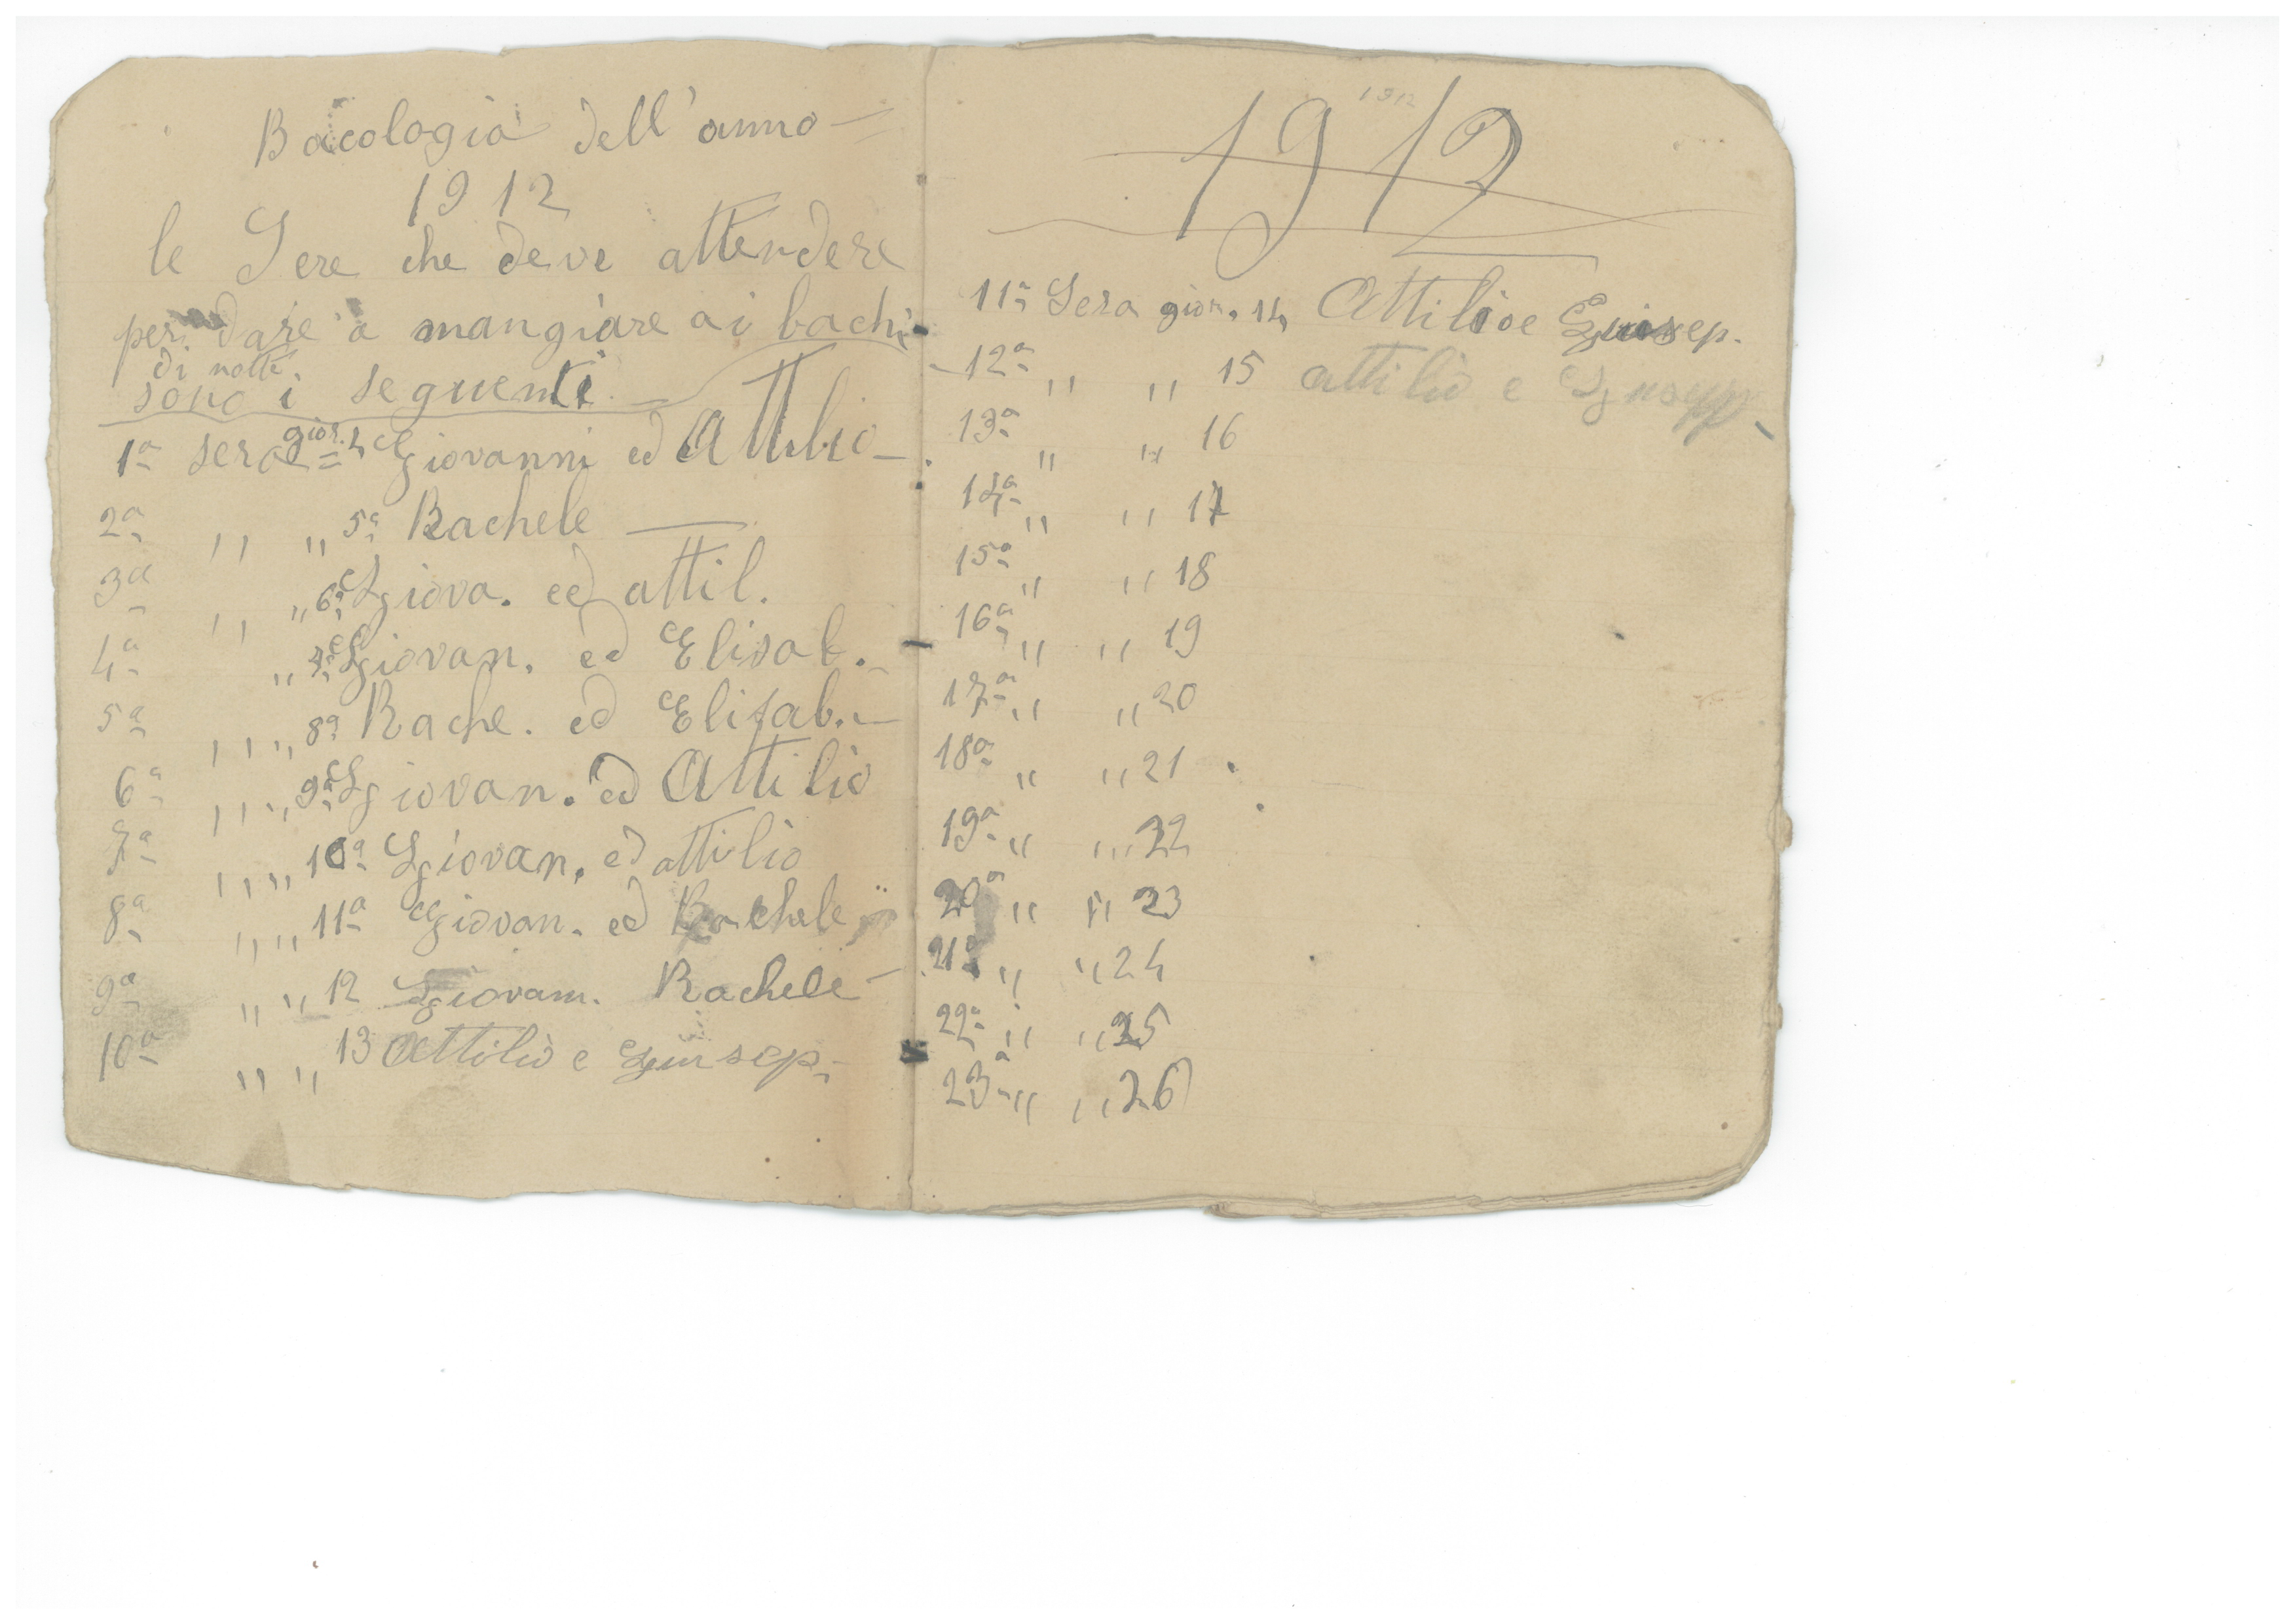 Bacologia dell'anno —
1912
le Sere che deve attendere
per dare a mangiare ai bachi
di notte.
sono i seguenti —
1ª sera gior. 4 Giovanni ed Attilio —
2ª ,, ,, 5ª Rachele —
3ª ,, ,, 6ª Giova. ed attil.
4ª ,, 7ª Giovan. ed Elisab. —
5ª ,, ,, 8ª Rache. ed Elisab. —
6ª ,, ,, 9ª Giovan. ed Attilio
7ª ,, ,, 10ª Giovan. ed attilio
8ª ,, ,, 11ª Giovan. ed Rachele
9ª ,, ,, 12 Giovan. Rachele —
10ª ,, ,, 13 Attilio e Giusep.
1912
1912
11ª Sera gior. 14 Attilio e Giusep.
12ª ,, ,, 15 attilio e Giusepp.
13ª ,, ,, 16
14ª ,, ,, 17
15ª ,, ,, 18
16ª ,, ,, 19
17ª ,, ,, 20
18ª ,, ,, 21
19ª ,, ,, 22
20ª ,, ,, 23
21ª ,, ,, 24
22ª ,, ,, 25
23ª ,, ,, 26